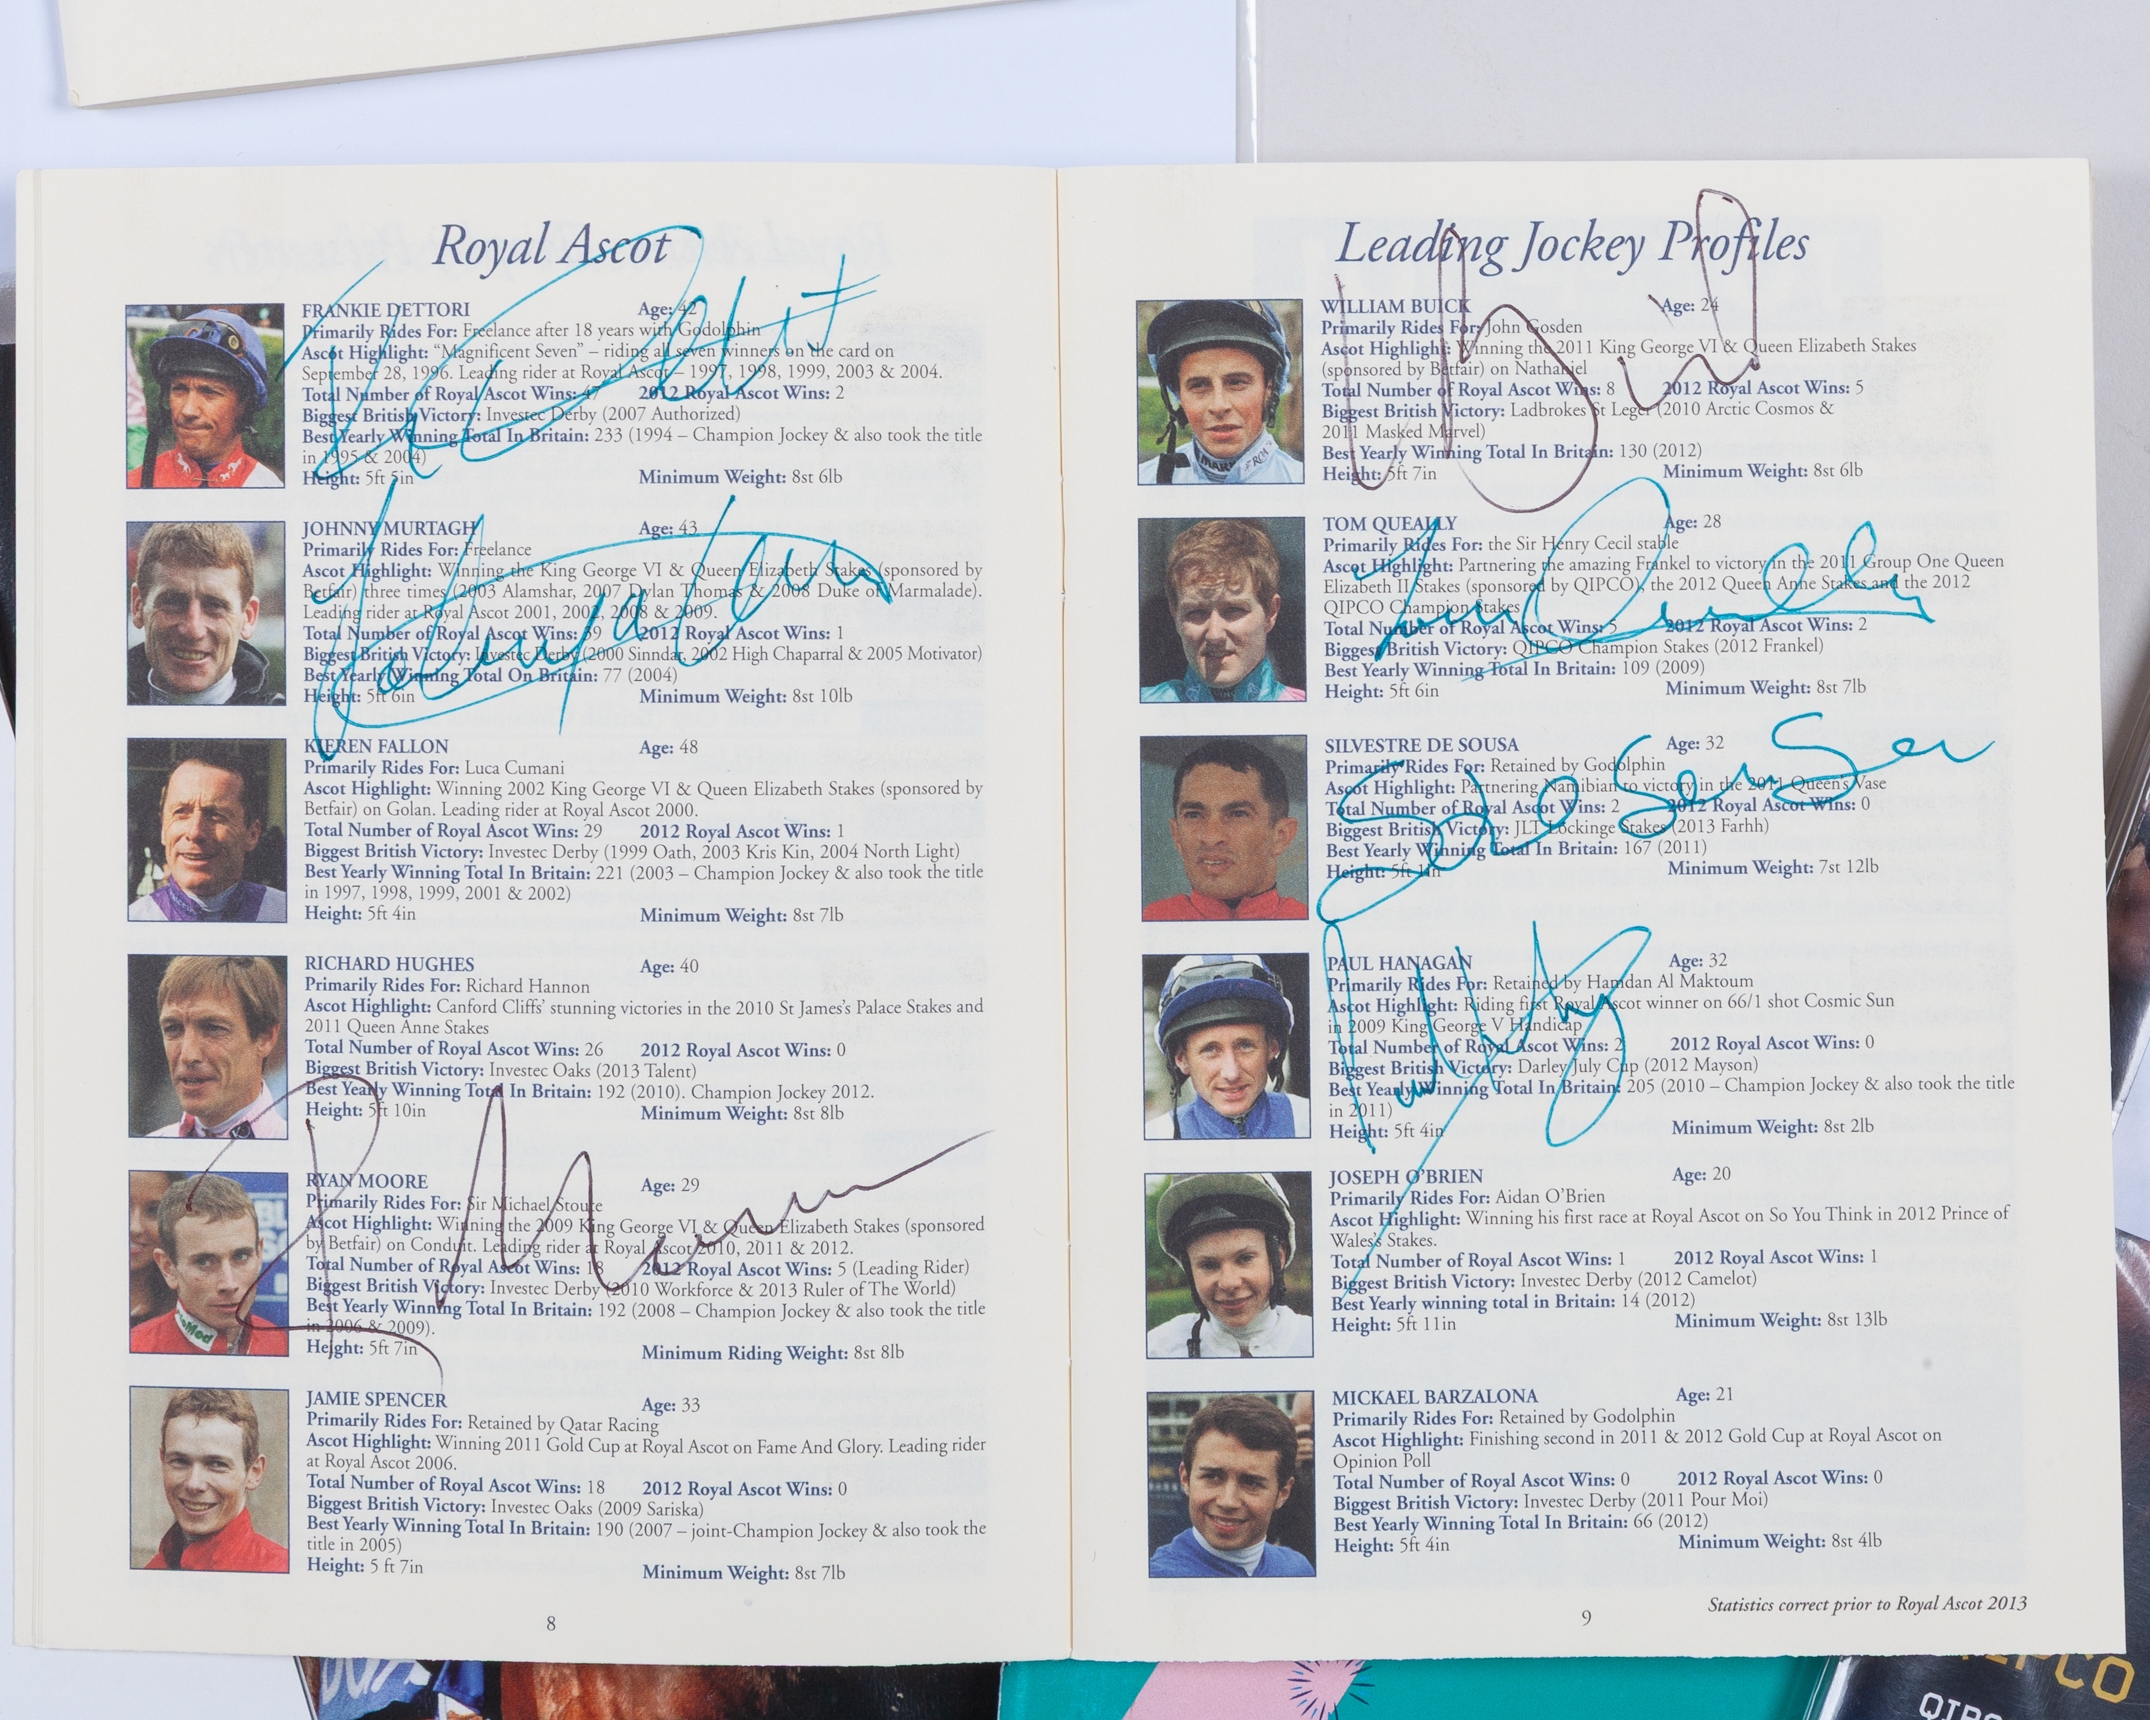 Royal Ascot
FRANKIE DETTORI Age: 42
Primarily Rides For: Freelance after 18 years with Godolphin
Ascot Highlight: “Magnificent Seven” – riding all seven winners on the card on
September 28, 1996. Leading rider at Royal Ascot – 1997, 1998, 1999, 2003 & 2004.
Total Number of Royal Ascot Wins: 47 2012 Royal Ascot Wins: 2
Biggest British Victory: Investec Derby (2007 Authorized)
Best Yearly Winning Total In Britain: 233 (1994 – Champion Jockey & also took the title
in 1995 & 2004)
Height: 5ft 5in Minimum Weight: 8st 6lb
JOHNNY MURTAGH Age: 43
Primarily Rides For: Freelance
Ascot Highlight: Winning the King George VI & Queen Elizabeth Stakes (sponsored by
Betfair) three times (2003 Alamshar, 2007 Dylan Thomas & 2008 Duke of Marmalade).
Leading rider at Royal Ascot 2001, 2002, 2008 & 2009.
Total Number of Royal Ascot Wins: 39 2012 Royal Ascot Wins: 1
Biggest British Victory: Investec Derby (2000 Sinndar, 2002 High Chaparral & 2005 Motivator)
Best Yearly Winning Total On Britain: 77 (2004)
Height: 5ft 6in Minimum Weight: 8st 10lb
KIEREN FALLON Age: 48
Primarily Rides For: Luca Cumani
Ascot Highlight: Winning 2002 King George VI & Queen Elizabeth Stakes (sponsored by
Betfair) on Golan. Leading rider at Royal Ascot 2000.
Total Number of Royal Ascot Wins: 29 2012 Royal Ascot Wins: 1
Biggest British Victory: Investec Derby (1999 Oath, 2003 Kris Kin, 2004 North Light)
Best Yearly Winning Total In Britain: 221 (2003 – Champion Jockey & also took the title
in 1997, 1998, 1999, 2001 & 2002)
Height: 5ft 4in Minimum Weight: 8st 7lb
RICHARD HUGHES Age: 40
Primarily Rides For: Richard Hannon
Ascot Highlight: Canford Cliffs’ stunning victories in the 2010 St James’s Palace Stakes and
2011 Queen Anne Stakes
Total Number of Royal Ascot Wins: 26 2012 Royal Ascot Wins: 0
Biggest British Victory: Investec Oaks (2013 Talent)
Best Yearly Winning Total In Britain: 192 (2010). Champion Jockey 2012.
Height: 5ft 10in Minimum Weight: 8st 8lb
RYAN MOORE Age: 29
Primarily Rides For: Sir Michael Stoute
Ascot Highlight: Winning the 2009 King George VI & Queen Elizabeth Stakes (sponsored
by Betfair) on Conduit. Leading rider at Royal Ascot 2010, 2011 & 2012.
Total Number of Royal Ascot Wins: 18 2012 Royal Ascot Wins: 5 (Leading Rider)
Biggest British Victory: Investec Derby (2010 Workforce & 2013 Ruler of The World)
Best Yearly Winning Total In Britain: 192 (2008 – Champion Jockey & also took the title
in 2006 & 2009).
Height: 5ft 7in Minimum Riding Weight: 8st 8lb
JAMIE SPENCER Age: 33
Primarily Rides For: Retained by Qatar Racing
Ascot Highlight: Winning 2011 Gold Cup at Royal Ascot on Fame And Glory. Leading rider
at Royal Ascot 2006.
Total Number of Royal Ascot Wins: 18 2012 Royal Ascot Wins: 0
Biggest British Victory: Investec Oaks (2009 Sariska)
Best Yearly Winning Total In Britain: 190 (2007 – joint-Champion Jockey & also took the
title in 2005)
Height: 5 ft 7in Minimum Weight: 8st 7lb
8
Leading Jockey Profiles
WILLIAM BUICK Age: 24
Primarily Rides For: John Gosden
Ascot Highlight: Winning the 2011 King George VI & Queen Elizabeth Stakes
(sponsored by Betfair) on Nathaniel
Total Number of Royal Ascot Wins: 8 2012 Royal Ascot Wins: 5
Biggest British Victory: Ladbrokes St Leger (2010 Arctic Cosmos &
2011 Masked Marvel)
Best Yearly Winning Total In Britain: 130 (2012)
Height: 5ft 7in Minimum Weight: 8st 6lb
TOM QUEALLY Age: 28
Primarily Rides For: the Sir Henry Cecil stable
Ascot Highlight: Partnering the amazing Frankel to victory in the 2011 Group One Queen
Elizabeth II Stakes (sponsored by QIPCO), the 2012 Queen Anne Stakes and the 2012
QIPCO Champion Stakes
Total Number of Royal Ascot Wins: 5 2012 Royal Ascot Wins: 2
Biggest British Victory: QIPCO Champion Stakes (2012 Frankel)
Best Yearly Winning Total In Britain: 109 (2009)
Height: 5ft 6in Minimum Weight: 8st 7lb
SILVESTRE DE SOUSA Age: 32
Primarily Rides For: Retained by Godolphin
Ascot Highlight: Partnering Namibian to victory in the 2011 Queen’s Vase
Total Number of Royal Ascot Wins: 2 2012 Royal Ascot Wins: 0
Biggest British Victory: JLT Lockinge Stakes (2013 Farhh)
Best Yearly Winning Total In Britain: 167 (2011)
Height: 5ft 1in Minimum Weight: 7st 12lb
PAUL HANAGAN Age: 32
Primarily Rides For: Retained by Hamdan Al Maktoum
Ascot Highlight: Riding first Royal Ascot winner on 66/1 shot Cosmic Sun
in 2009 King George V Handicap
Total Number of Royal Ascot Wins: 2 2012 Royal Ascot Wins: 0
Biggest British Victory: Darley July Cup (2012 Mayson)
Best Yearly Winning Total In Britain: 205 (2010 – Champion Jockey & also took the title
in 2011)
Height: 5ft 4in Minimum Weight: 8st 2lb
JOSEPH O’BRIEN Age: 20
Primarily Rides For: Aidan O’Brien
Ascot Highlight: Winning his first race at Royal Ascot on So You Think in 2012 Prince of
Wales’s Stakes.
Total Number of Royal Ascot Wins: 1 2012 Royal Ascot Wins: 1
Biggest British Victory: Investec Derby (2012 Camelot)
Best Yearly winning total in Britain: 14 (2012)
Height: 5ft 11in Minimum Weight: 8st 13lb
MICKAEL BARZALONA Age: 21
Primarily Rides For: Retained by Godolphin
Ascot Highlight: Finishing second in 2011 & 2012 Gold Cup at Royal Ascot on
Opinion Poll
Total Number of Royal Ascot Wins: 0 2012 Royal Ascot Wins: 0
Biggest British Victory: Investec Derby (2011 Pour Moi)
Best Yearly Winning Total In Britain: 66 (2012)
Height: 5ft 4in Minimum Weight: 8st 4lb
Statistics correct prior to Royal Ascot 2013
9